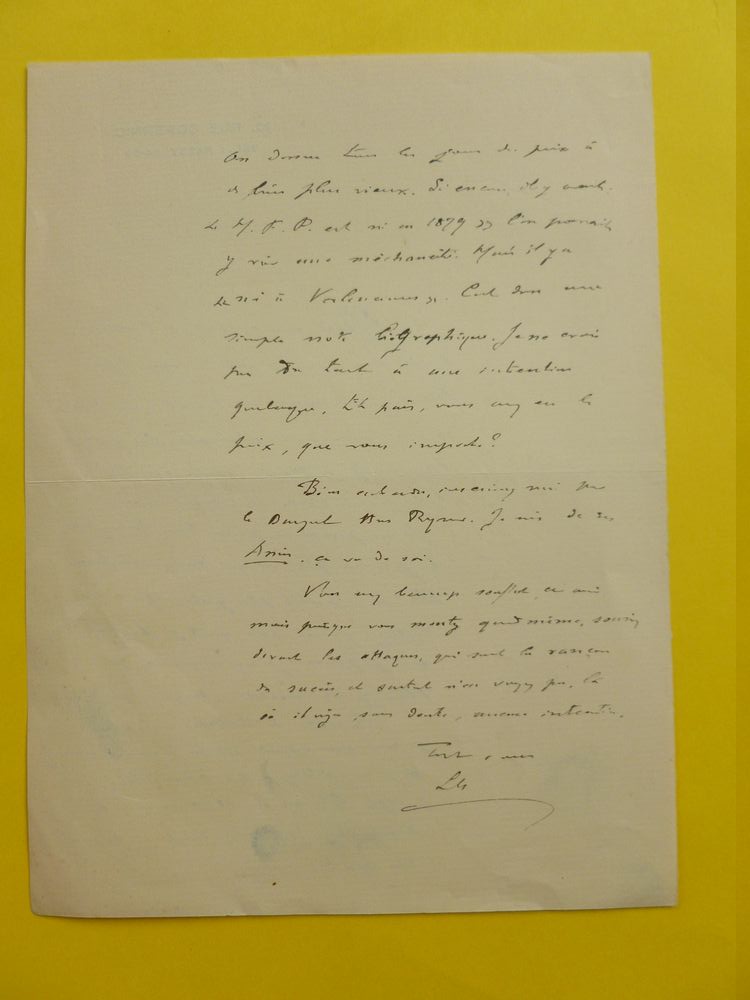 On donne tous les jours des prix à
de bien plus vieux. Si encore, il y avait:
Le M. F. P. est né en 1879 » l'on pourrait
y voir une méchanceté. Mais il y a
né à C'est donc une
simple note biographique. Je ne crois
pas du tout à une intention
quelconque. Et puis, vous avez eu le
prix, que vous importe?
Bien entendu, inscrivez moi pour
le Banquet Han Ryner. Je suis de ses
Amis. ça va de soi.
Vous avez beaucoup souffert, cher ami
mais puisque vous montez quand même, souriez
devant les attaques, qui sont la rançon
du succès, et surtout n'en voyez pas, là
où il n'y a, sans doute, aucune intention.
Tout à vous